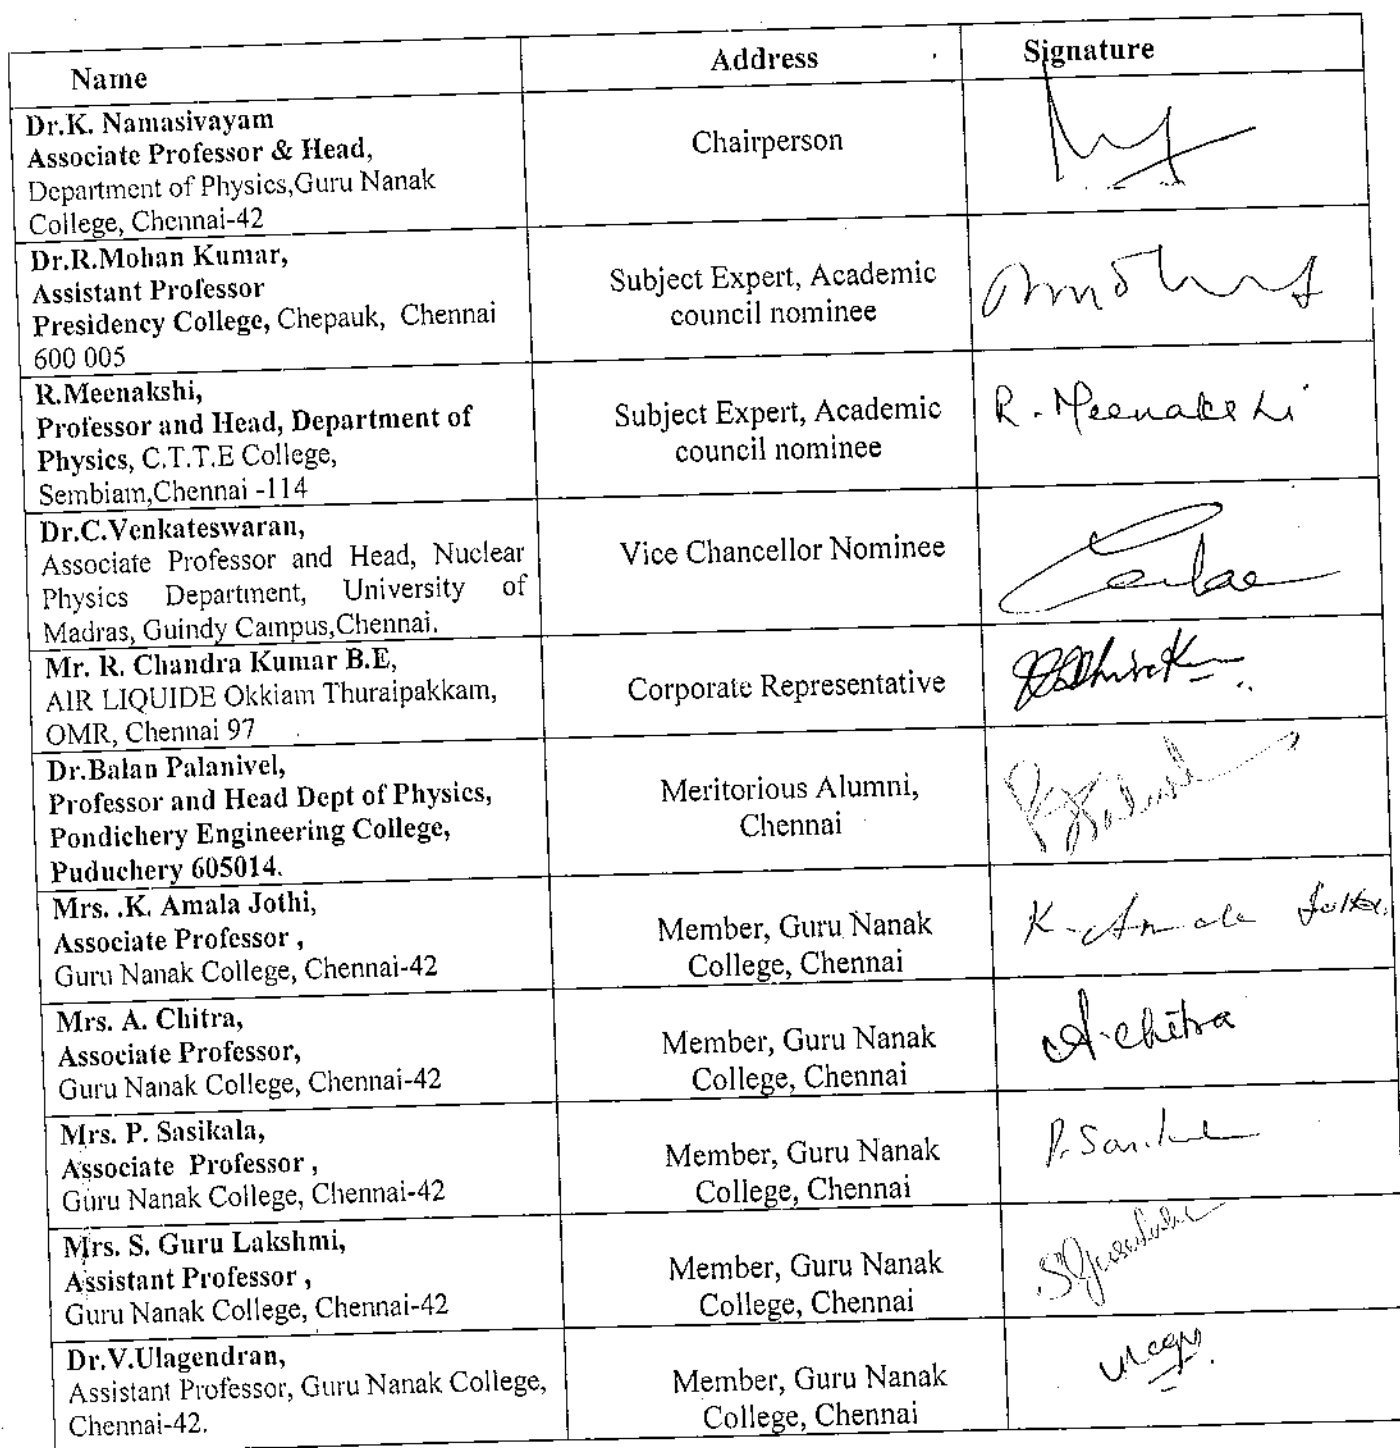 Name Address Signature
Dr.K. Namasivayam
Associate Professor & Head,
Department of Physics,Guru Nanak
College, Chennai-42
Chairperson
Dr.R.Mohan Kumar,
Assistant Professor
Presidency College, Chepauk, Chennai
600 005
Subject Expert, Academic
council nominee
R.Meenakshi,
Professor and Head, Department of
Physics, C.T.T.E College,
Sembiam,Chennai -114
Subject Expert, Academic
council nominee
R. Meenakshi
Dr.C.Venkateswaran,
Associate Professor and Head, Nuclear
Physics Department, University of
Madras, Guindy Campus,Chennai.
Vice Chancellor Nominee
Mr. R. Chandra Kumar B.E,
AIR LIQUIDE Okkiam Thuraipakkam,
OMR, Chennai 97
Corporate Representative
Dr.Balan Palanivel,
Professor and Head Dept of Physics,
Pondichery Engineering College,
Puduchery 605014.
Meritorious Alumni,
Chennai
Mrs. .K. Amala Jothi,
Associate Professor ,
Guru Nanak College, Chennai-42
Member, Guru Nanak
College, Chennai
K. Amala
Mrs. A. Chitra,
Associate Professor,
Guru Nanak College, Chennai-42
Member, Guru Nanak
College, Chennai
A. Chitra
Mrs. P. Sasikala,
Associate Professor ,
Guru Nanak College, Chennai-42
Member, Guru Nanak
College, Chennai
Mrs. S. Guru Lakshmi,
Assistant Professor ,
Guru Nanak College, Chennai-42
Member, Guru Nanak
College, Chennai
Dr.V.Ulagendran,
Assistant Professor, Guru Nanak College,
Chennai-42.
Member, Guru Nanak
College, Chennai